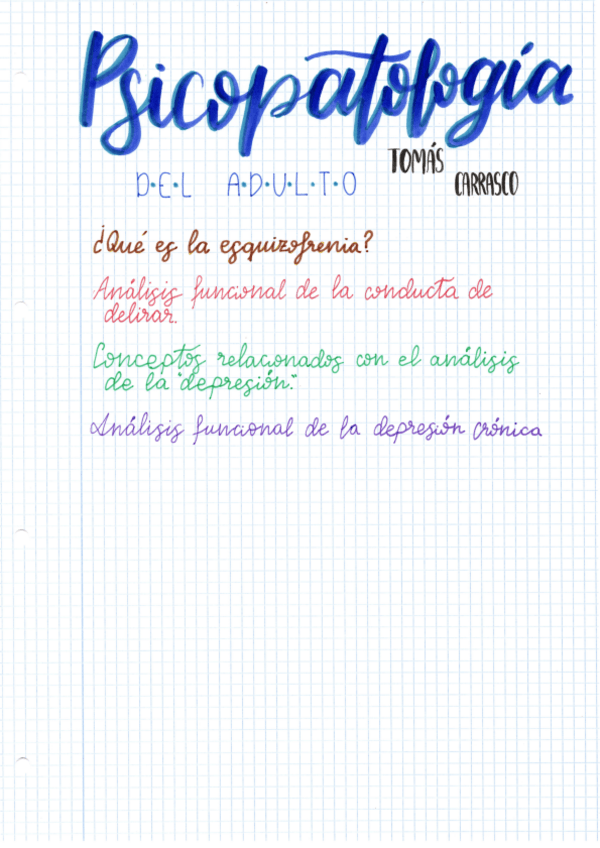 Psicopatología
D·E·L A·D·U·L·T·O
TOMÁS
CARRASCO
¿Qué es la esquizofrenia?
Análisis funcional de la conducta de
delirar.
Conceptos relacionados con el análisis
de la "depresión."
Análisis funcional de la depresión crónica